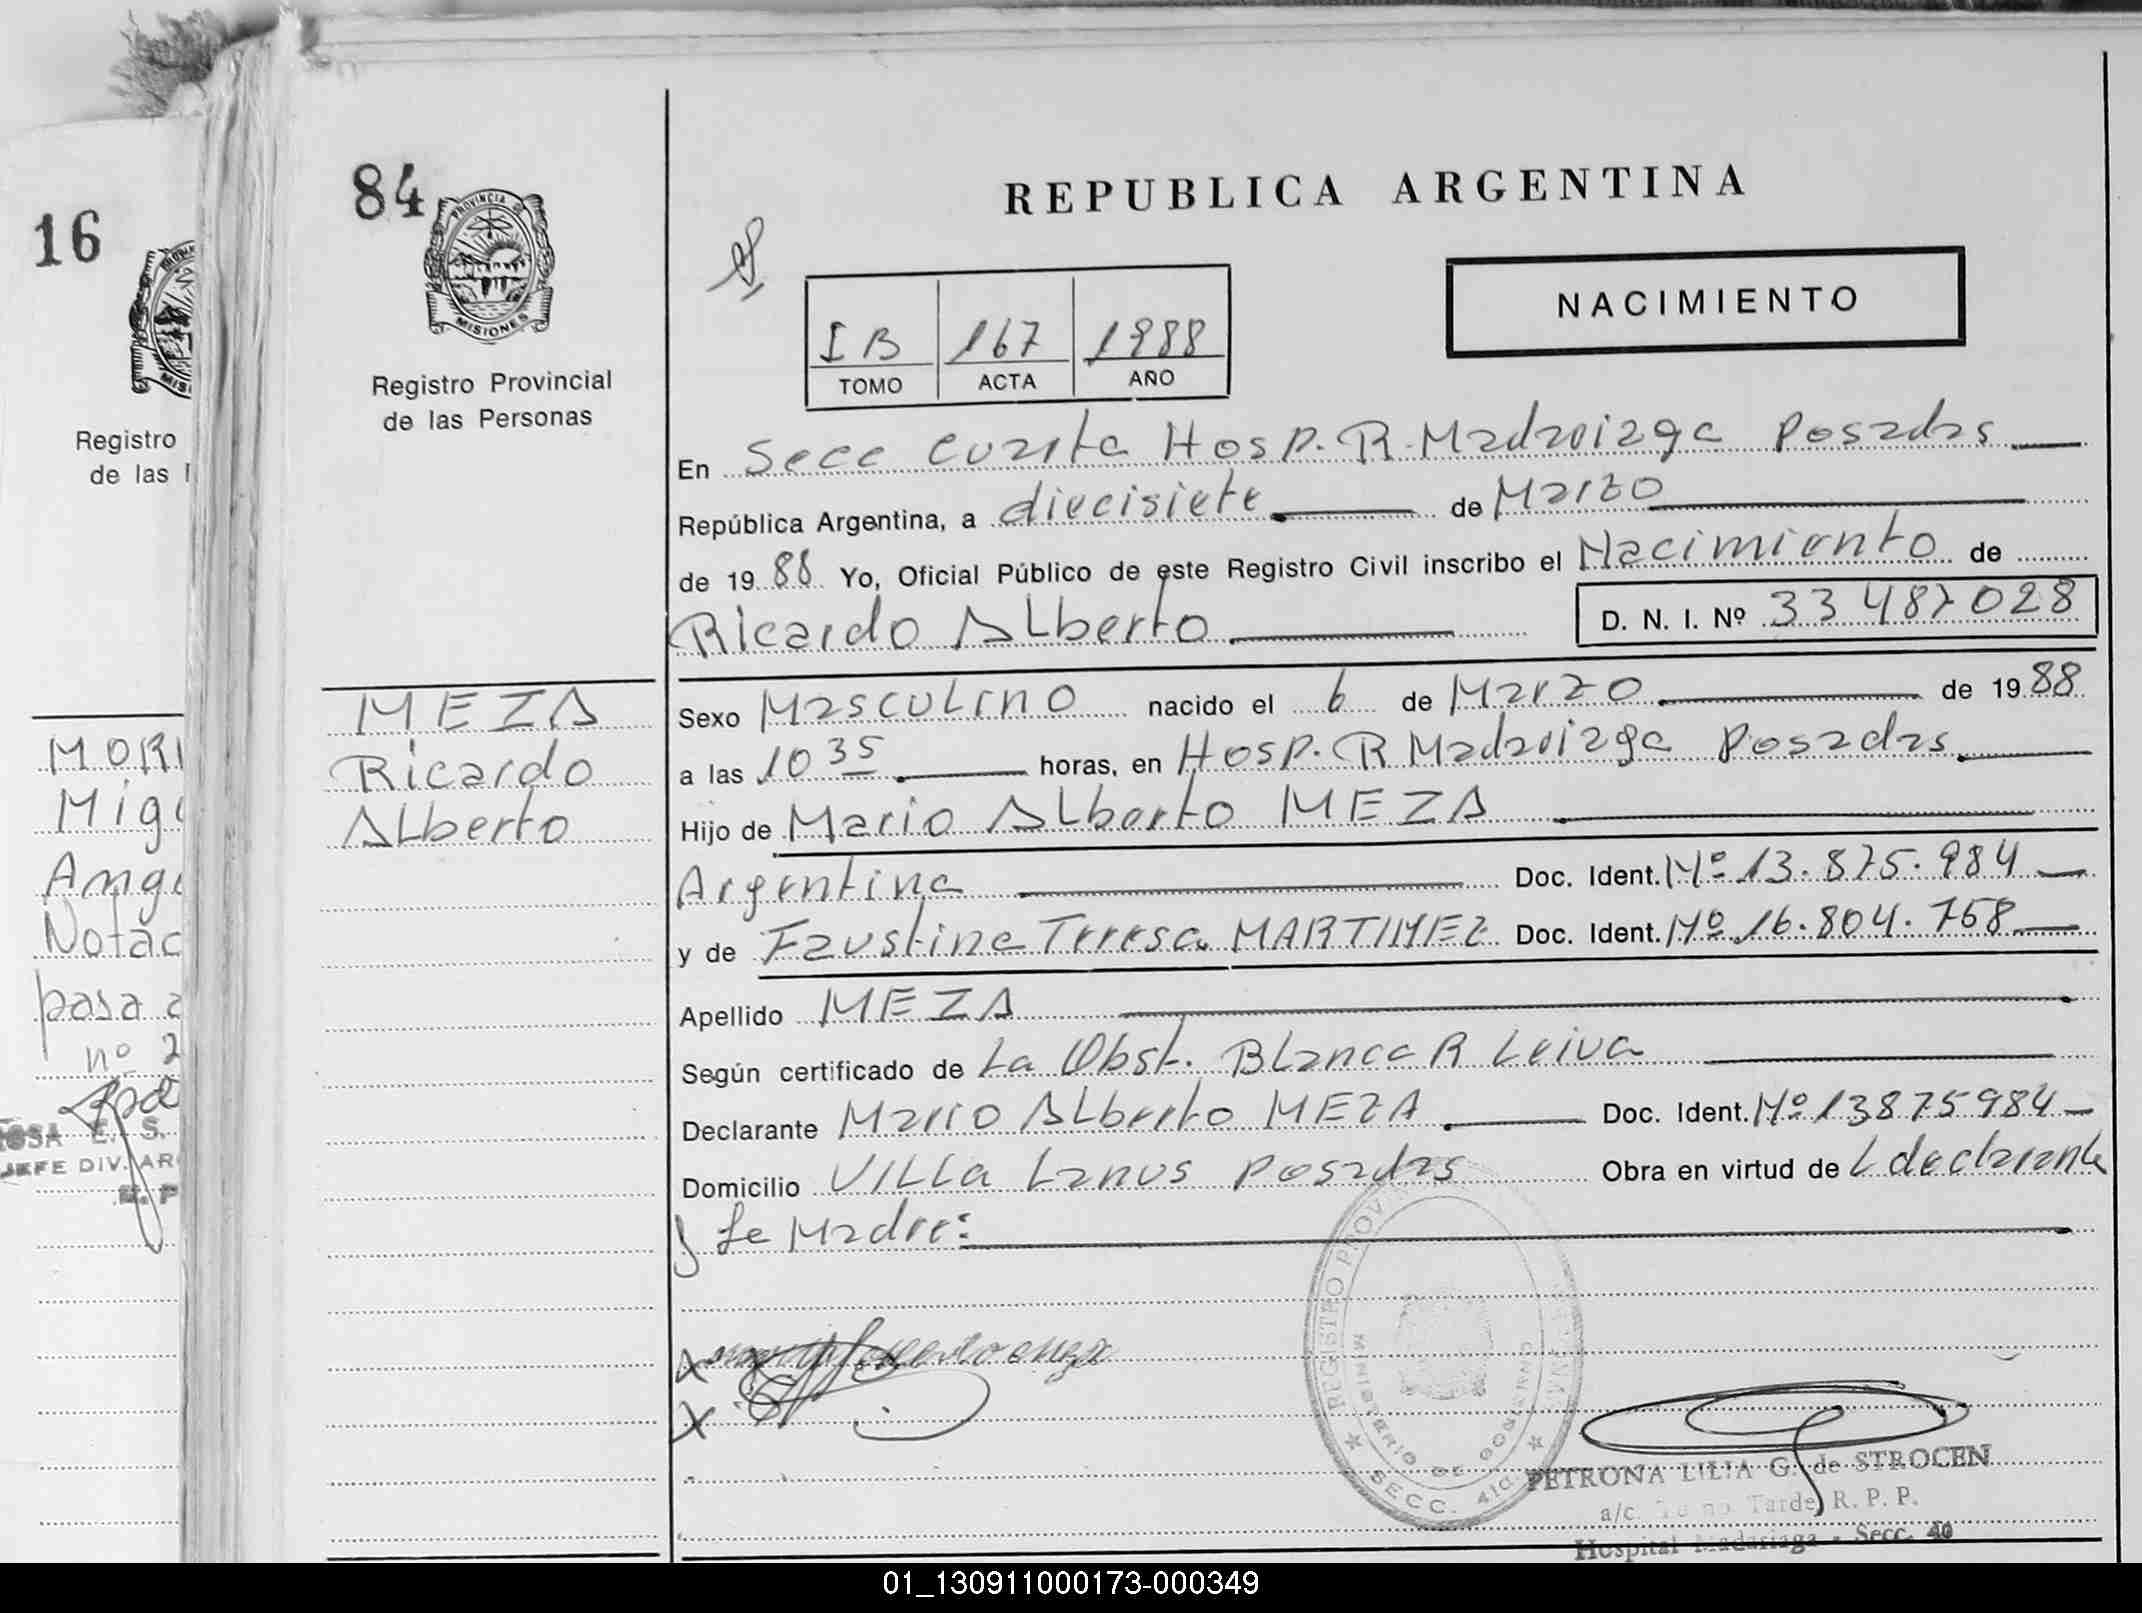 16
Registro
de las
MORI
Migu
Ang
Notac
pasa a
nº 2
E. S.
JEFE DIV. AR
84
PROVINCIA DE
MISIONES
Registro Provincial
de las Personas
MEZA
Ricardo
Alberto
REPUBLICA ARGENTINA
NACIMIENTO
IB 167 1988
TOMO ACTA AÑO
En Secc Cuarta Hosp. R. Madariaga Posadas
República Argentina, a diecisiete de Marzo
de 1988 Yo, Oficial Público de este Registro Civil inscribo el Nacimiento de
Ricardo Alberto D. N. I. Nº 33487028
Sexo Masculino nacido el 6 de Marzo de 1988
a las 10 35 horas, en Hosp. R Madariaga Posadas
Hijo de Mario Alberto MEZA
Argentina Doc. Ident. Nº 13.875.984
y de Faustina Teresa MARTINEZ Doc. Ident. Nº 16.804.758
Apellido MEZA
Según certificado de La Obst. Blanca R Leiva
Declarante Mario Alberto MEZA Doc. Ident. Nº 13875984
Domicilio Villa Lanus Posadas Obra en virtud de L declarante
y La Madre:
REGISTRO PROV
MINISTERIO DE GOBIERNO
SECC. 4ta
PETRONA LILIA G. de STROCEN
a/c. Turno Tarde R. P. P.
Hospital Madariaga - Secc. 4ta
01_130911000173-000349